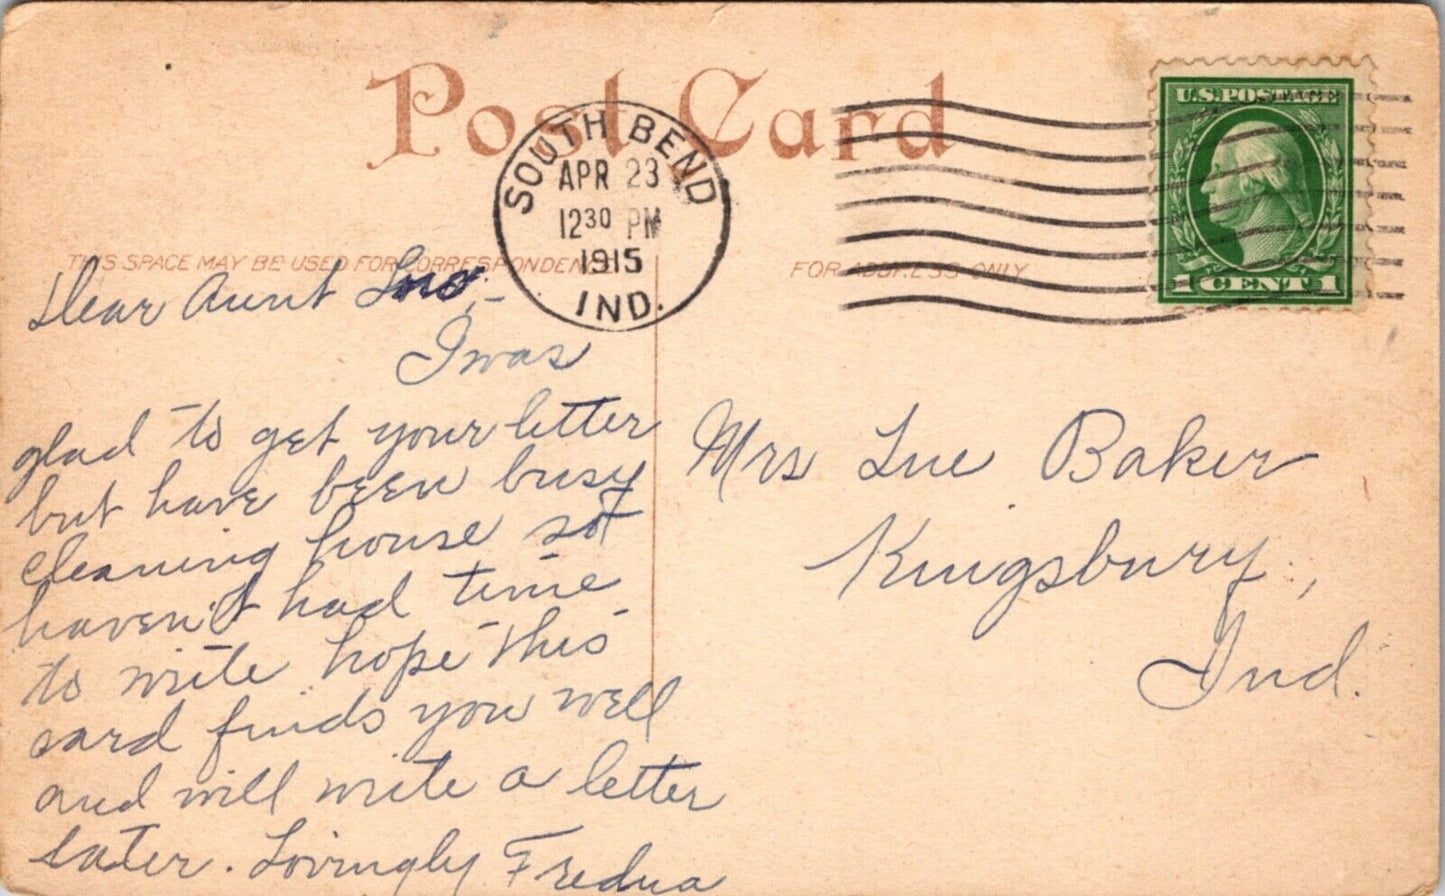 Post Card
U.S. POSTAGE
1 CENT 1
SOUTH BEND
APR 23
12 30 PM
1915
IND.
THIS SPACE MAY BE USED FOR CORRESPONDENCE
FOR ADDRESS ONLY
Dear Aunt
I was
glad to get your letter
but have been busy
cleaning house so
haven't had time
to write hope this
card finds you well
and will write a letter
later. Lovingly Fredna
Mrs Lue Baker
Kingsbury,
Ind.